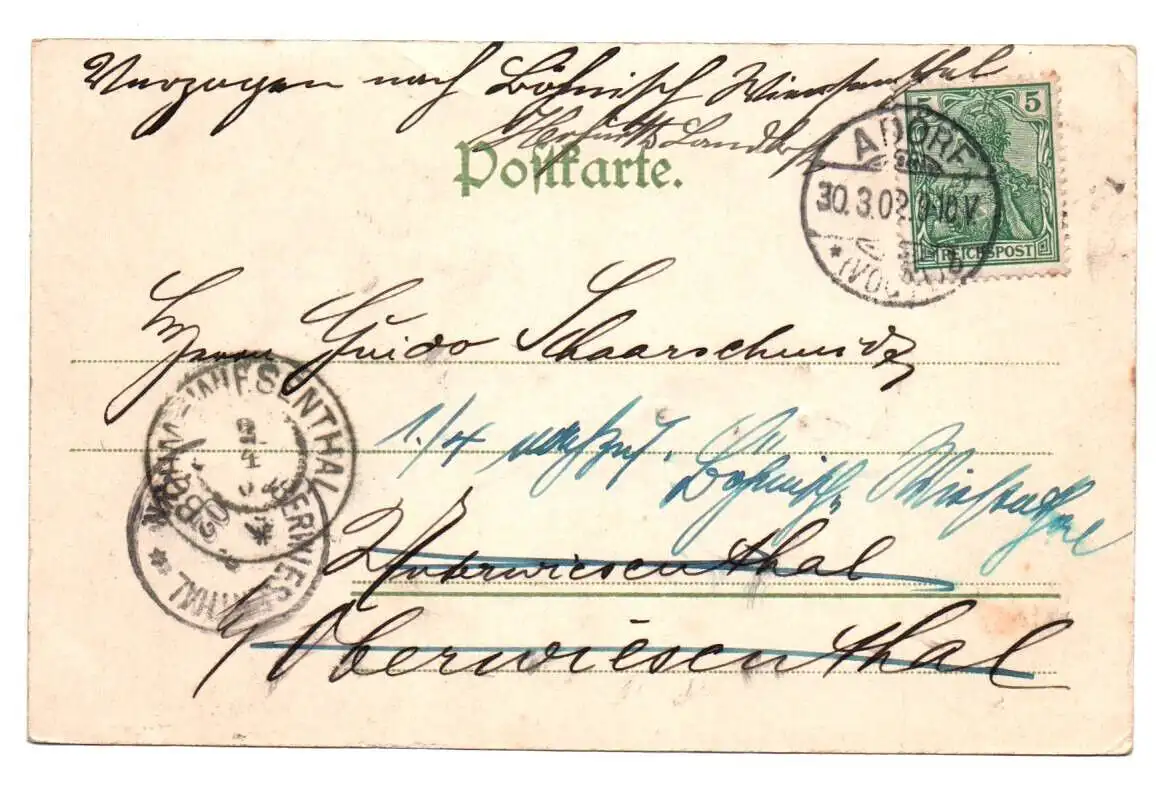 Verzogen nach Böhmisch Wiesenthal
Postkarte.
5 5
REICHSPOST
ADORF
30.3.02 9-10 V.
(VOGTL.)
Herrn Guido Schaarschmidt
1./4 verzog. Böhmisch Wiesenthal
BÖHM. WIESENTHAL
2 4 02
OBERWIESENTHAL
Unterwiesenthal
b/ Oberwiesenthal